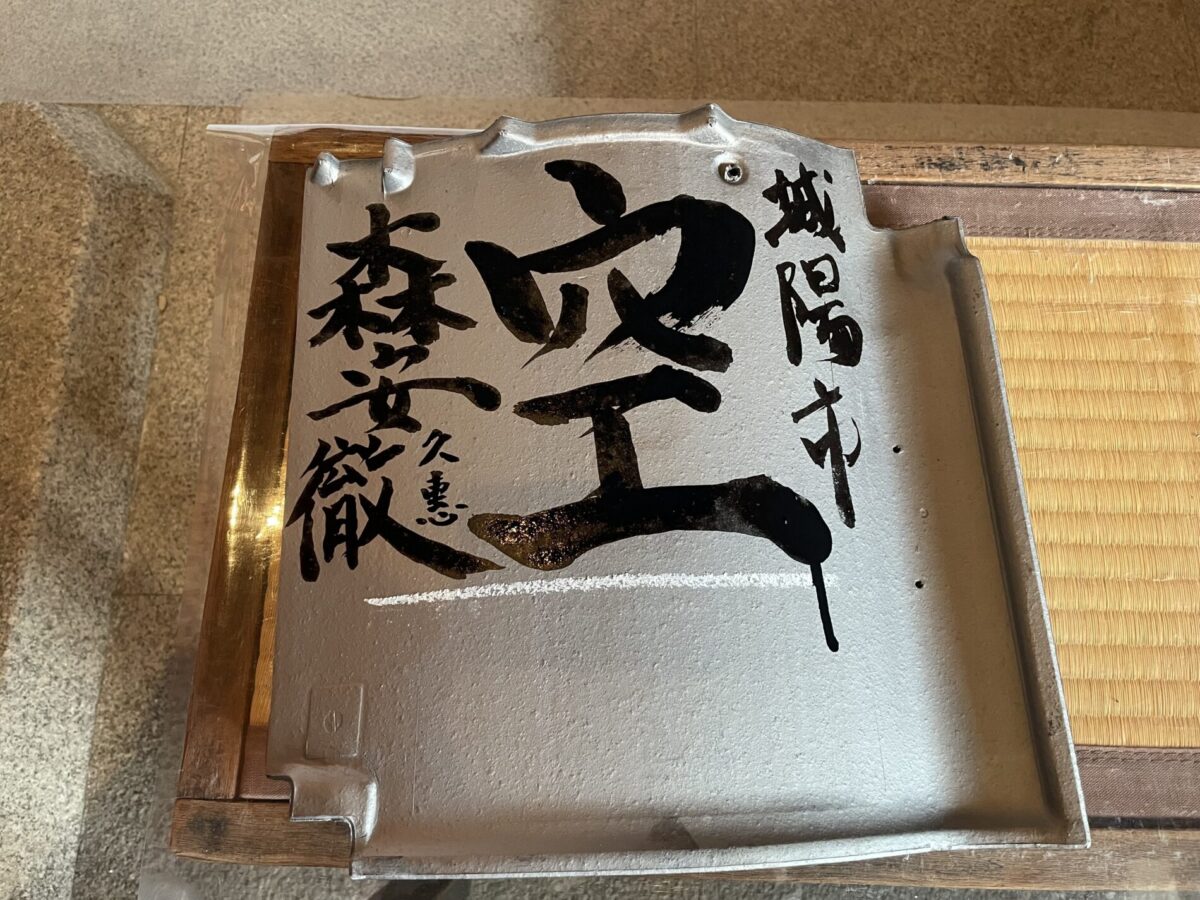 城陽市
空
森安徹
久惠